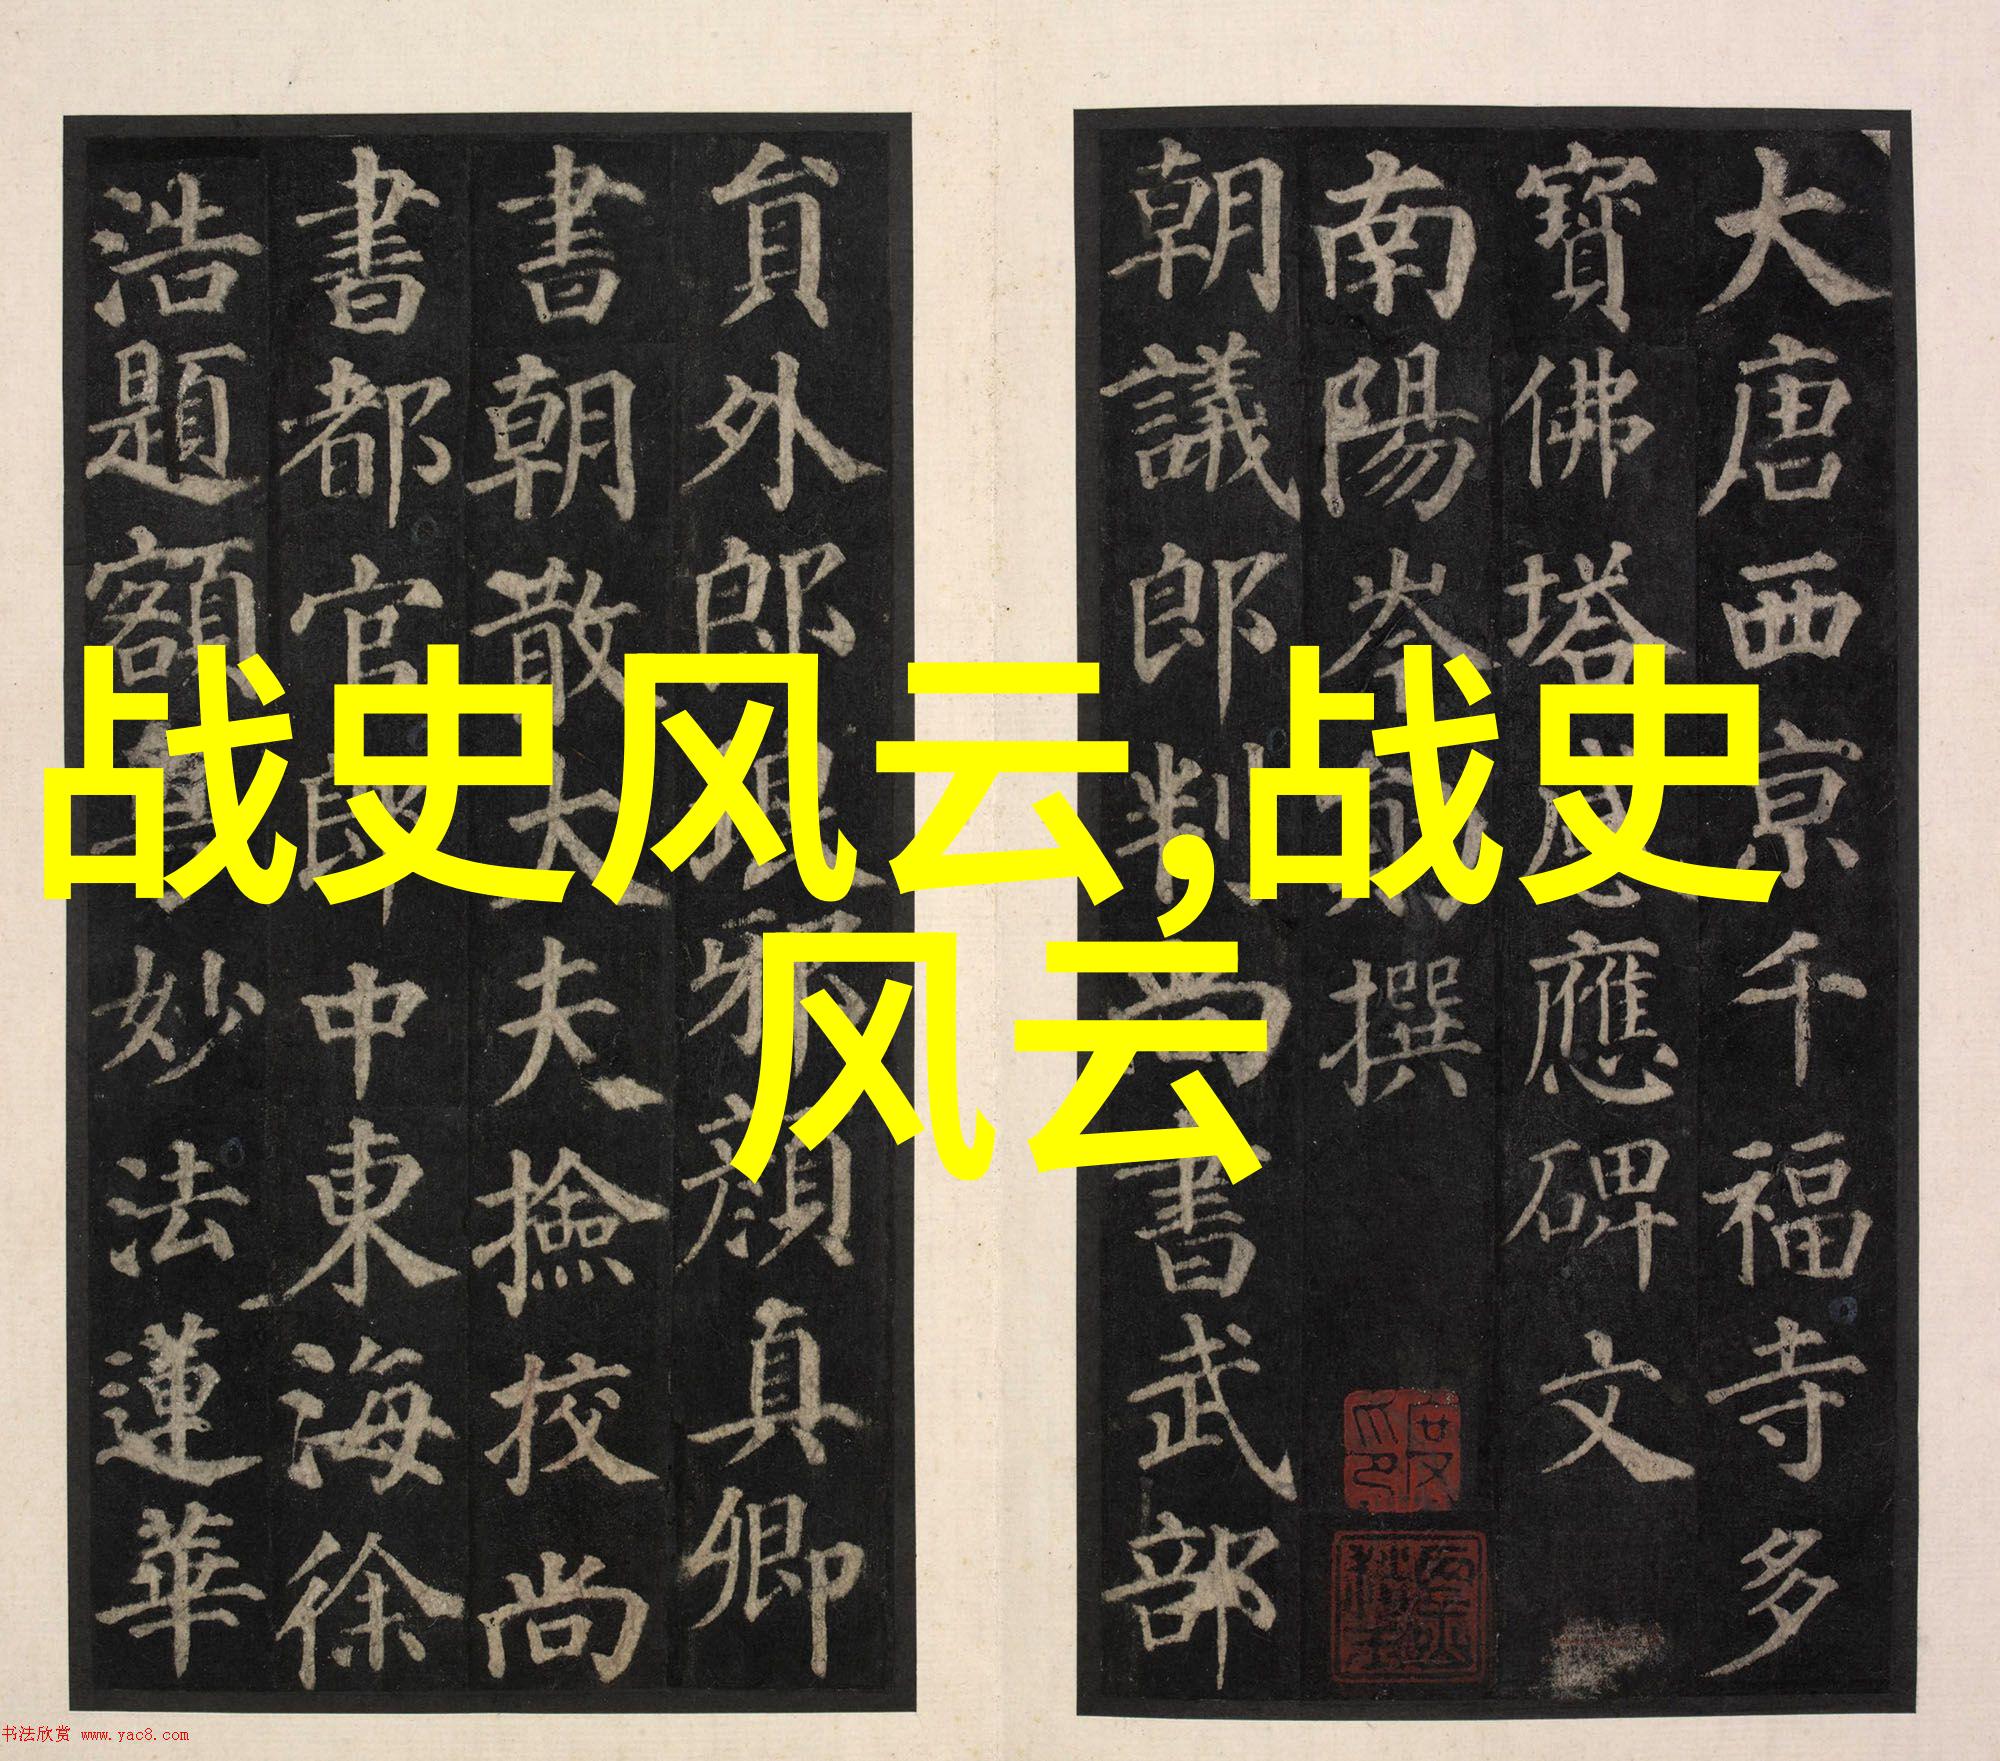 战史风云,战史
风云
大唐西京千福寺多
寶佛塔感應碑文
南陽岑勛撰
朝議郎判尚書武部
貟外郎琅邪顏真卿
書朝散大夫撿校尚
書都官郎中東海徐
浩題額粤妙法蓮華
书法欣赏 www.yac8.com